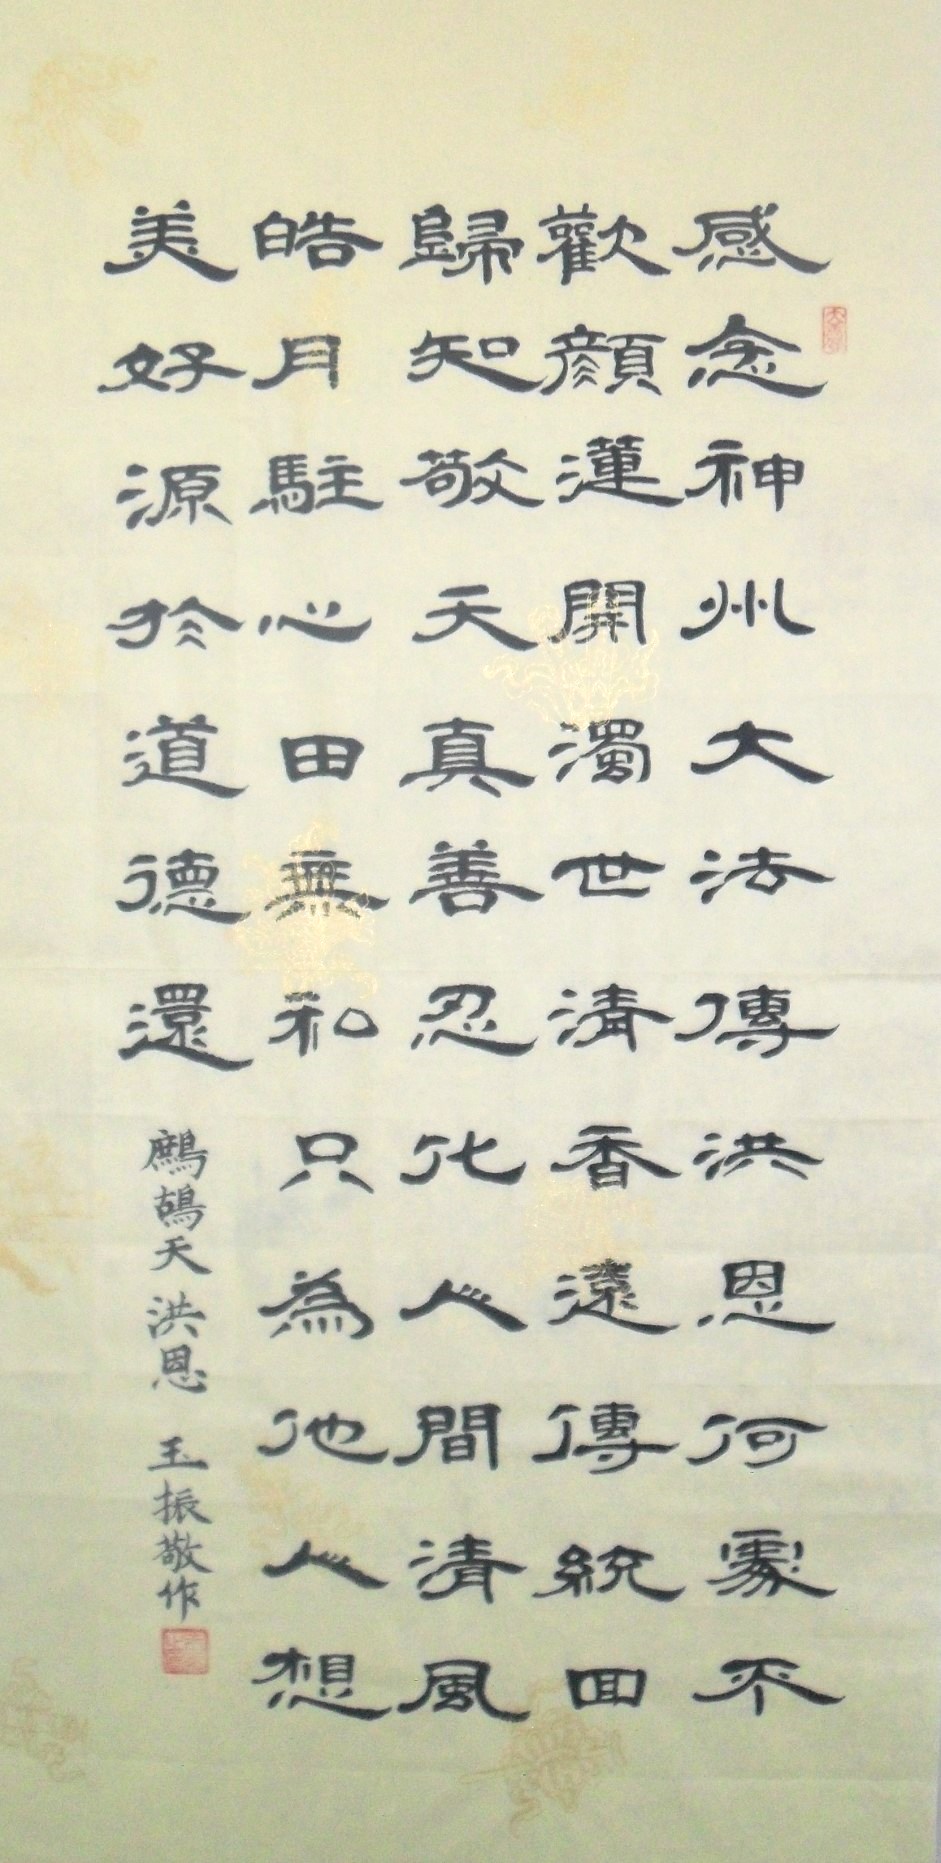 感念神州大法傳洪恩何處不
歡顏蓮開濁世清香遠傳統回
歸知敬天真善忍化人間清風
皓月駐心田無私只為他人想
美好源於道德還
鷓鴣天 洪恩 玉振敬作